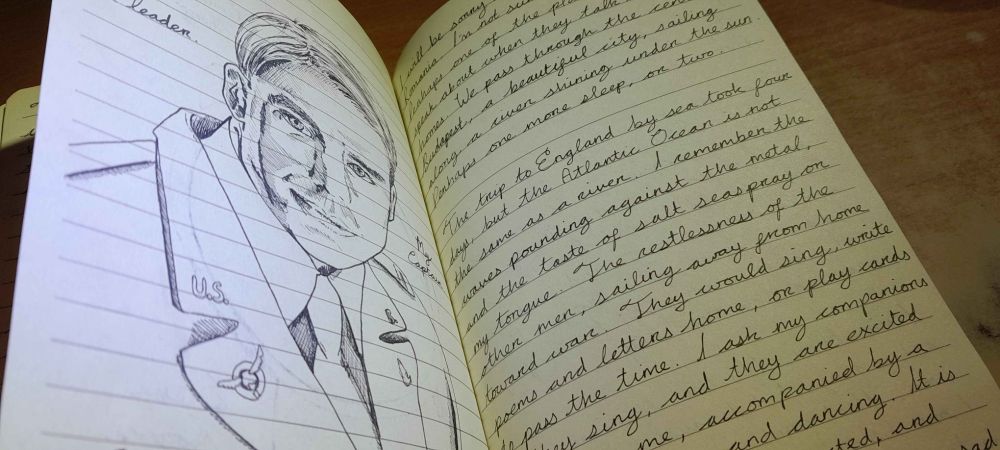 leader.
U.S.
My
Captain
I will be sorry
Romania. I'm not su
perhaps one of the pla
speak about when they talk
homes. We pass through the cen
Budapest, a beautiful city, sailing
along a river shining under the sun.
Perhaps one more sleep, or two.
The trip to England by sea took four
days, but the Atlantic Ocean is not
the same as a river. I remember the
waves pounding against the metal,
and the taste of salt seaspray on
my tongue. The restlessness of the
other men, sailing away from home
toward war. They would sing, write
poems and letters home, or play cards
to pass the time. I ask my companions
they sing, and they are excited
me, accompanied by a
and dancing. It is
ted, and
sad